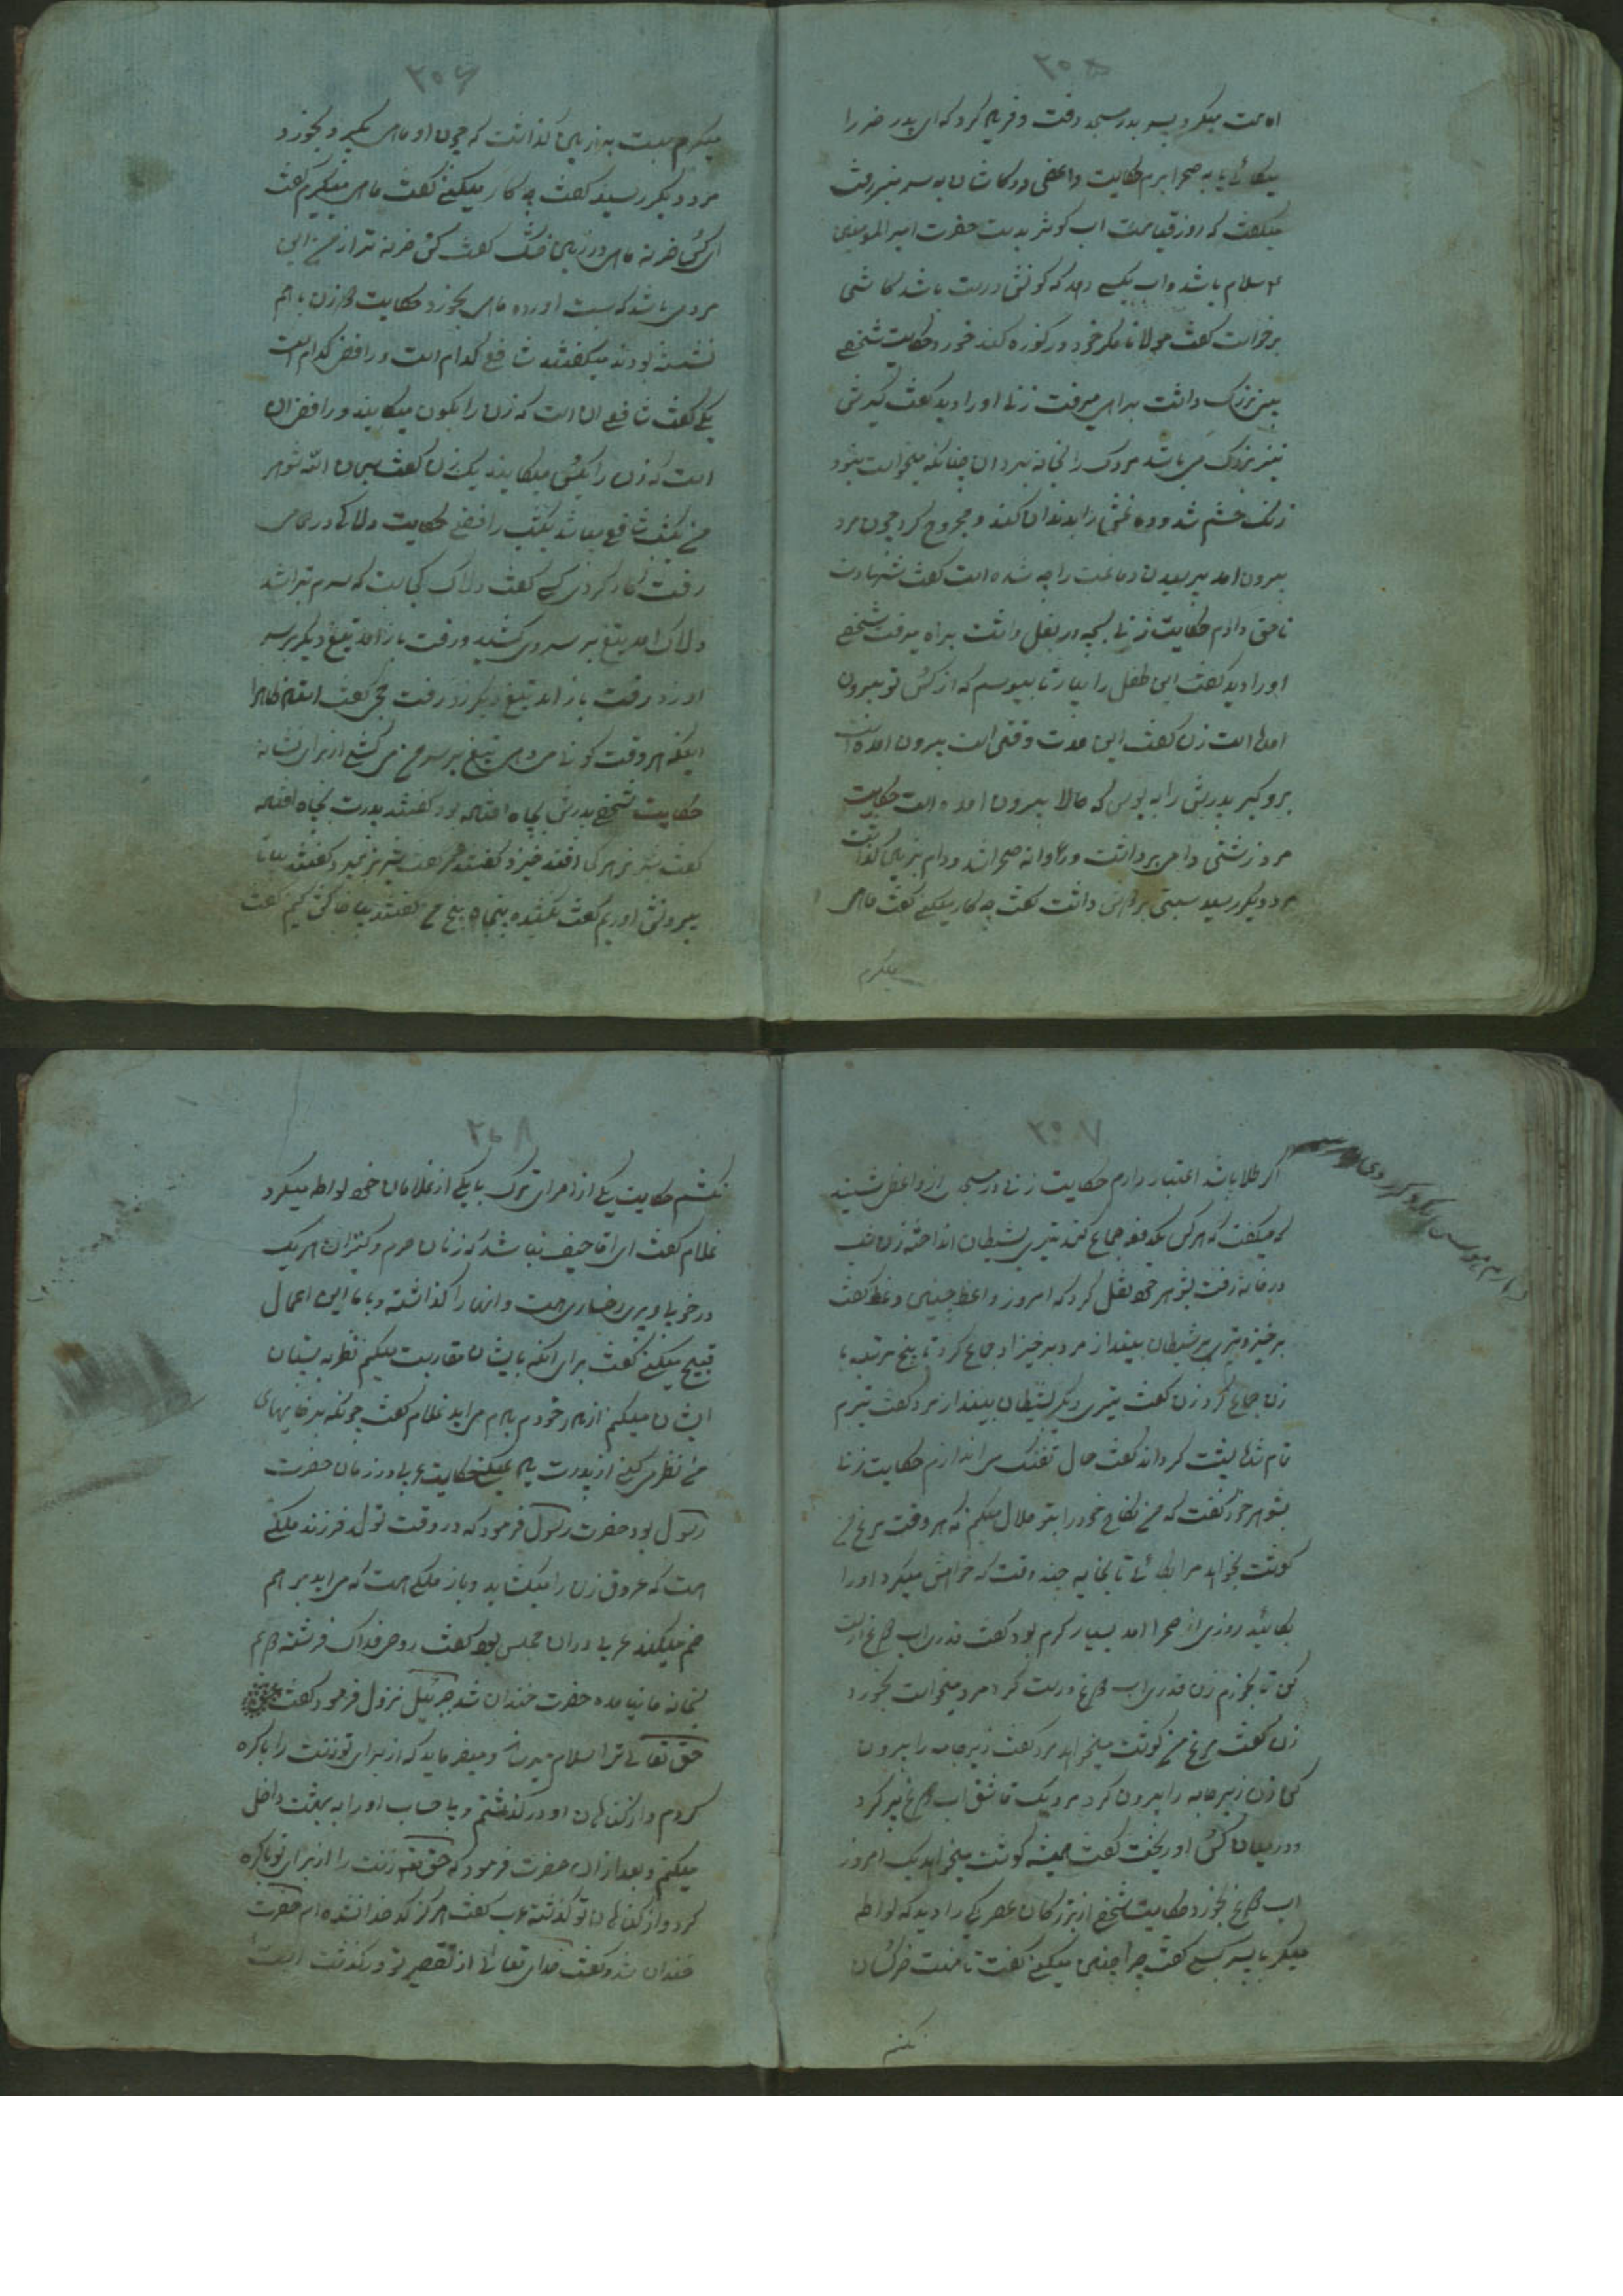 ۳۰۵
امامت میکرد پسر بدر مسجد رفت و فریاد کرد که ای پدر خر را
میگائی یا به صحرا برم حکایت واعظی در کاشان به سر منبر رفت
میگفت که روز قیامت اب کوثر بدست حضرت امیر المومنین
علیه سلام باشد و اب بکسی دهد که کونش درست باشد کاشی
برخواست گفت مولانا مگر خود در کوزه کند خورد حکایت شخصی
بینی بزرگ داشت براهی میرفت زنی او را دید گفت کیرش
نیز بزرگ می باشد مردک را بخانه برد ان چنانکه میخواست نبود
زنک خشم شد و دماغش را بدندان کند و مجروح کرد چون مرد
بیرون امد پرسیدن دماغت را چه شده است گفت شهادت
ناحق دادم حکایت زنی بچه در بغل داشت براه میرفت شخصی
او را دید گفت این طفل را بیار تا ببوسم که از کس تو بیرون
امده است زن گفت این مدت وقتی است بیرون امده است
برو کیر پدرش را به بوس که حالا بیرون امده است حکایت
مرد زشتی دامی برداشت و روانه صحرا شد و دام بزمین گذاشت
مرد دیگر رسید سبتی بدوش داشت گفت چه کار میکنی گفت ماهی
میگیرم
۳۰۶
میگیرم سبت به زمین گذاشت که چون او ماهی بگیرد بخورد
مرد دیگر رسید گفت چه کار میکنی گفت ماهی میگیرم گفت
ای کس خر نه ماهی در زمین خشک گفت کس خر نه تر از من این
مرد می باشد که سبت اورده ماهی بخورد حکایت دو زن با هم
نشسته بودند میگفتند شافعی کدام است و رافضی کدام است
یکی گفت شافعی ان است که زن را بکون میگایند و رافضی ان
است که زن را بکس میگایند یک زن گفت سبحان الله شوهر
من یکشب شافعی میباشد یکشب رافضی حکایت دلاکی در حمامی
رفت کار کردی کسی گفت دلاک کجاست که سرم تراشد
دلاک امد تیغ بر سر وی کشید و رفت باز امد تیغ دیگر بر سر
او زد و رفت باز امد تیغ دیگر زد رفت
اینکه هر وقت کونی می دهی تیغ بر سر من می کشی از برای نشانه
حکایت شخصی پدرش بچاه افتاده بود گفتند پدرت بچاه افتاده
بیرونش اوریم گفت
۳۰۷
اگر طلا باشد اعتبار دارم حکایت زنی در مسجد از واعظی شنید
که میگفت که هر کس یکدفعه جماع کند تیری بشیطان انداخته زن شب
در خانه رفت بشوهر خود نقل کرد که امروز واعظ چنین وعظ گفت
برخیز و تیری بر شیطان بینداز مرد برخیزاد جماع کرد تا پنج مرتبه با
زن جماع کرد زن گفت تیری دیگر بشیطان بینداز مرد گفت تیرم
تمام شد پشت گرداند گفت حال تفنگ می اندازم حکایت زنی
بشوهر خود گفت که من نکاح خود را بتو حلال میکنم که هر وقت مرغ من
گوشت بخواهد مرا بگائی تا بخانه چند وقت که خواهش میکرد او را
بگائید روزی از صحرا امد بسیار گرم بود گفت قدری اب دوغ درست
کن تا بخورم زن قدری اب دوغ درست کرد مرد میخواست بخورد
زن گفت مرغ من گوشت میخواهد مرد گفت زیرجامه را بیرون
کن زن زیرجامه را بیرون کرد مرد یک قاشق اب دوغ پر کرد
و در میان کس او ریخت گفت همیشه گوشت میخواهد یک امروز
اب دوغ بخورد حکایت شخصی از بزرگان عصر یکی را دید که لواطه
میکرد با پسر کسی گفت چرا چنین میکنی گفت تا منت خر کسان
نکشم
۳۰۸
نکشم حکایت یکی از امرای ترک با یکی از غلامان خود لواطه میکرد
غلام گفت ای اقا حیف نباشد که زنان حرم و کنیزان هر یک
در خوبی و پری رخساری هست و انها را گذاشته و با ما این اعمال
قبیح میکنی گفت برای انکه با ایشان مقاربت میکنم نظر به پستان
ایشان میکنم از مادر خودم یادم می اید غلام گفت چونکه بر خایهای
من نظر می کنی از پدرت یاد نمیکنی حکایت عربی در زمان حضرت
رسول بود حضرت رسول فرمود که در وقت تولد فرزند ملکی
است که عروق زن را میگشاید و باز ملکی هست که می اید بر هم
ضم میکند عربی دران مجلس بود گفت روحی فداک فرشته دویم
بخانه ما نیامده حضرت خندان شد جبرئیل نزول فرمود گفت
حق تعالی ترا سلام میرساند و میفرماید که از برای تو زنت را باکره
کردم و از گناهان او در گذشتم و بی حساب او را به بهشت داخل
میکنم و بعد از ان حضرت فرمود که حق تعالی زنت را از برای تو باکره
کرد و از گناهان تو گذشته عرب گفت هرگز کد خدا نشده ام حضرت
خندان شد و گفت خدای تعالی از تقصیر تو در گذشت